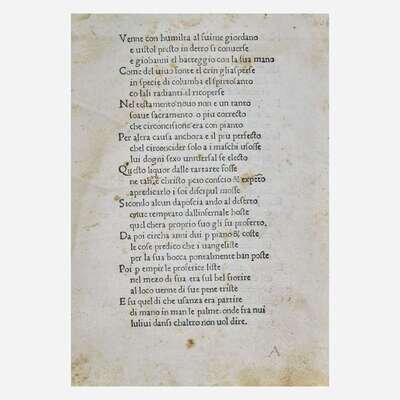 Venne con humilta al fiume giordano
e uistol presto in detro si conuerse
e giohanni el batteggio con la sua mano
Come del uiuo fonte el crin gliasperse
in specie di columba el spirito santo
co lali radianti el ricoperse
Nel testamento nouo non e un tanto
soaue sacramento o piu correcto
che circoncisione era con pianto
Per altra causa anchora e il piu perfecto
chel circoncider solo a i maschi usosse
lui dogni sexo uniuersal se electo
Questo liquor dalle tartaree fosse
ne tanse christo pero conscio & experto
apredicarlo i soi discipul mosse
Sicondo alcun dapoi sciando al deserto
temptato dallinfernale hoste
qual chera proprio suo gli su proferto,
Da poi circha anni dui p piano & coste,
le cose predicto che i uangeliste
per la sua bocca pontalmente han poste
Poi p empir le profetice liste
nel mezo di sua era sul bel fiorire
al loco uenne di sue pene triste
E su quel di che usanza era partire
di mano in man le palme: onde fra nui
luliui dansi chaltro non uol dire.
A